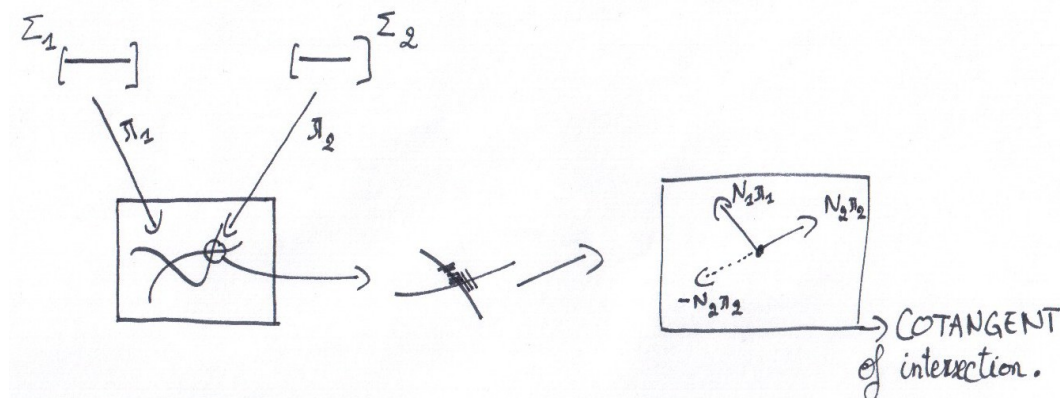 Σ1
Σ2
π1
π2
N1π1
N2π2
-N2π2
COTANGENT
of intersection.